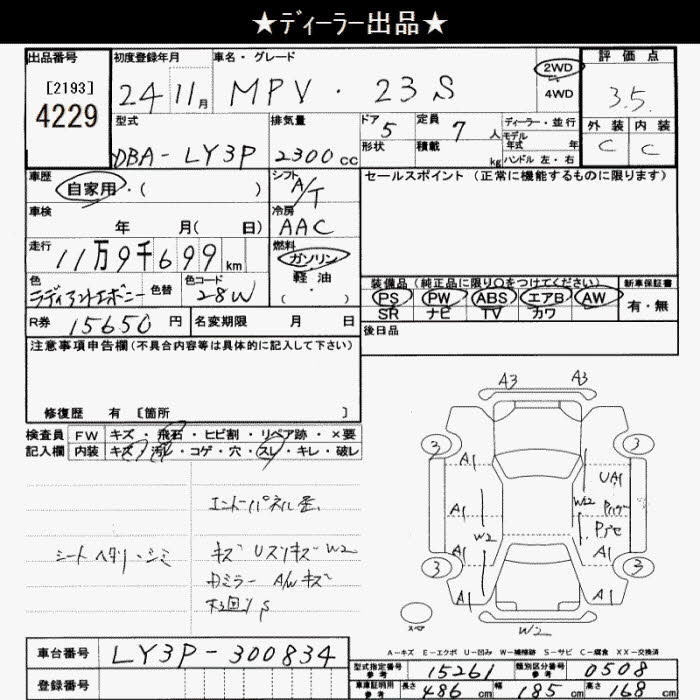 ★ディーラー出品★
出品番号 初度登録年月 車名・グレード 評価点
[2193] 24 11月 MPV・23S 2WD 4WD 3.5
4229
型式 排気量 ドア 5 定員 7人 ディーラー・並行 外装 内装
DBA-LY3P 2300cc 形状 積載 kg モデル年式 年 ハンドル左・右 C C
車歴 シフト セールスポイント (正常に機能するものに限ります)
自家用・( ) A/T
車検 冷房
年 月( 日) AAC
走行 燃料
11万9千699km ガソリン
色 色替 色コード 軽油 装備品(純正品に限り○をつけてください) 新車保証書
ラディアントエボニー 28W ・( ) PS PW ABS エアB AW 有・無
SR ナビ TV カワ
R券 15650円 名変期限 月 日 後日品
注意事項申告欄(不具合内容等は具体的に記入して下さい)
修復歴 有 [箇所 ]
検査員 FW キズ・飛石・ヒビ割・リペア跡・×要
記入欄 内装 キズ・汚・コゲ・穴・スレ・キレ・破レ
シートヘタリ・シミ
キズ Uスリキズ W2
ミラー A/wキズ
A3 A3
3 3
A1 UA1
W2
A1
W2
A1 A1
3 3
A1 A1
スペア
W2
A-キズ E-エクボ U-凹み W-補修跡 S-サビ C-腐食 XX-交換済
車台番号 LY3P-300834
型式指定番号 参考 15261 類別区分番号 参考 0508
登録番号
車車証明用 参考 長さ 486cm 幅 185cm 高さ 168cm